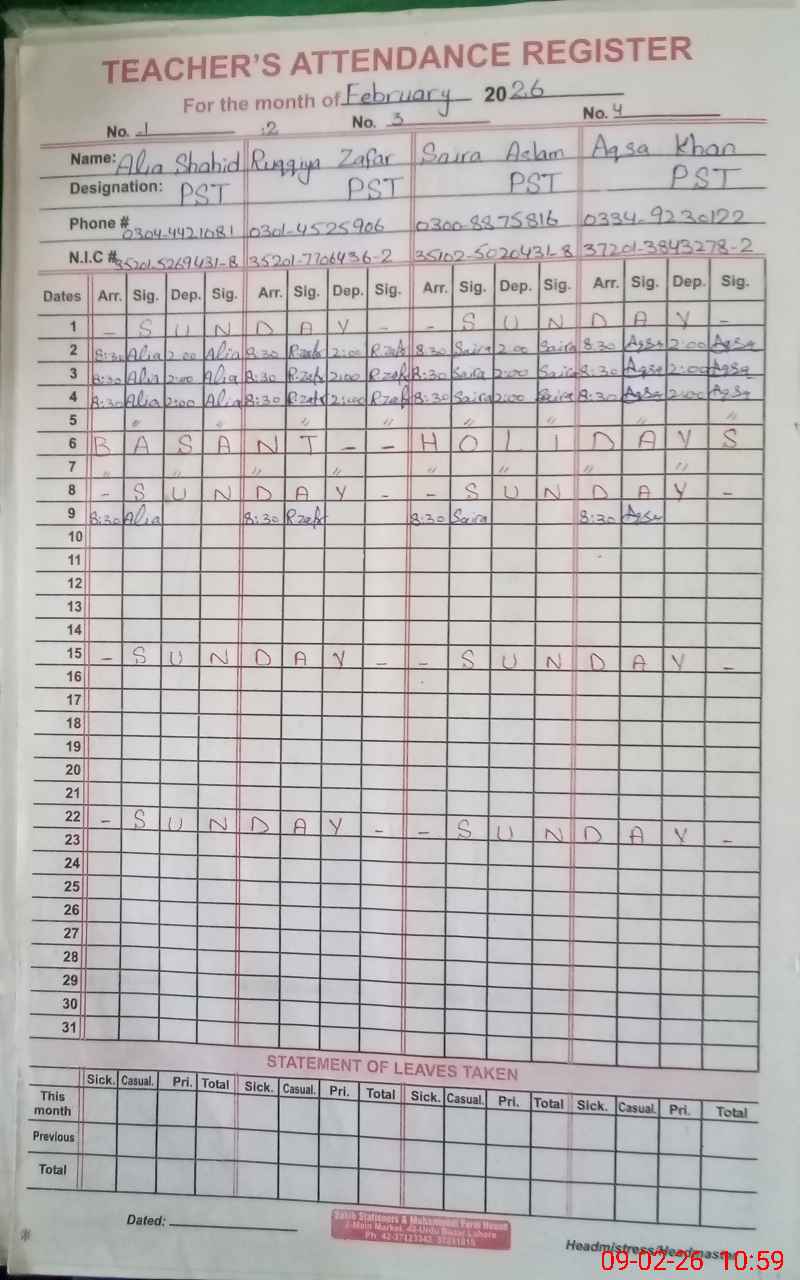 TEACHER'S ATTENDANCE REGISTER
For the month of February 2026
No. 1 :2 No. 3 No. 4
Name: Alia Shahid Ruqqiya Zafar Saira Aslam Aqsa Khan
Designation: PST PST PST PST
Phone # 0304-4421081 0301-4525906 0300-8875816 0334-9230122
N.I.C # 35201-5269431-8 35201-7706436-2 35102-5020431-8 37201-3843278-2
Dates Arr. Sig. Dep. Sig. Arr. Sig. Dep. Sig. Arr. Sig. Dep. Sig. Arr. Sig. Dep. Sig.
1 - S U N D A Y - - S U N D A Y -
2 8:30 Alia 2:00 Alia 8:30 R.zafr 2:00 R.zafr 8:30 Saira 2:00 Saira 8:30 Aqsa 2:00 Aqsa
3 8:30 Alia 2:00 Alia 8:30 R.zafr 2:00 R.zafr 8:30 Saira 2:00 Saira 8:30 Aqsa 2:00 Aqsa
4 8:30 Alia 2:00 Alia 8:30 R.zafr 2:00 R.zafr 8:30 Saira 2:00 Saira 8:30 Aqsa 2:00 Aqsa
5 " " " " " " " "
6 B A S A N T - - H O L I D A Y S
7 " " " " " " " "
8 - S U N D A Y - - S U N D A Y -
9 8:30 Alia 8:30 R.zafr 8:30 Saira 8:30 Aqsa
10
11
12
13
14
15 - S U N D A Y - - S U N D A Y -
16
17
18
19
20
21
22 - S U N D A Y - - S U N D A Y -
23
24
25
26
27
28
29
30
31
STATEMENT OF LEAVES TAKEN
Sick. Casual. Pri. Total Sick. Casual. Pri. Total Sick. Casual. Pri. Total Sick. Casual. Pri. Total
This month
Previous
Total
Dated:
Sakib Stationers & Muhammadi Form House
2-Main Market, 42-Urdu Bazar Lahore
Headmistress/Headmaster
09-02-26 10:59